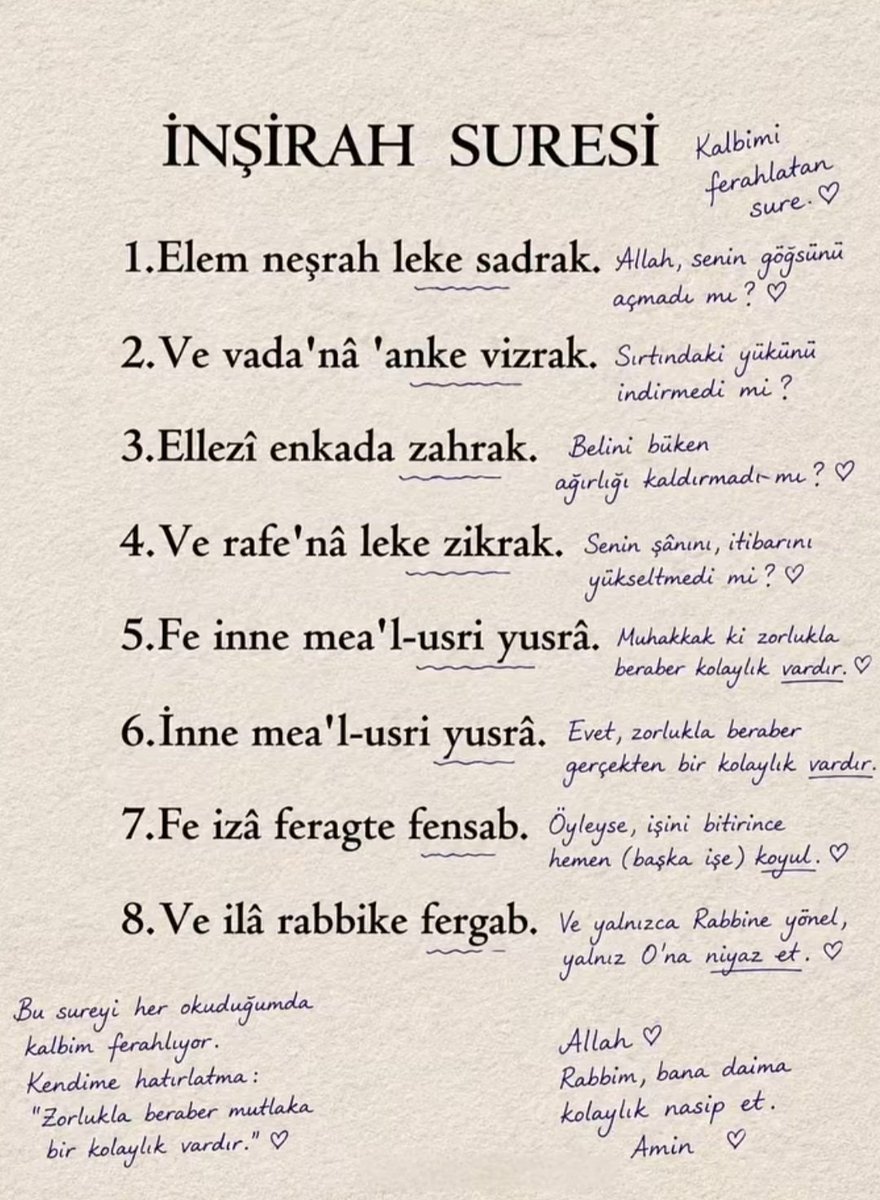 İNŞİRAH SURESİ
Kalbimi
ferahlatan
sure. ♡
1.Elem neşrah leke sadrak.
Allah, senin göğsünü
açmadı mı? ♡
2.Ve vada'nâ 'anke vizrak.
Sırtındaki yükünü
indirmedi mi?
3.Ellezî enkada zahrak.
Belini büken
ağırlığı kaldırmadı mı? ♡
4.Ve rafe'nâ leke zikrak.
Senin şânını, itibarını
yükseltmedi mi? ♡
5.Fe inne mea'l-usri yusrâ.
Muhakkak ki zorlukla
beraber kolaylık vardır. ♡
6.İnne mea'l-usri yusrâ.
Evet, zorlukla beraber
gerçekten bir kolaylık vardır.
7.Fe izâ feragte fensab.
Öyleyse, işini bitirince
hemen (başka işe) koyul. ♡
8.Ve ilâ rabbike fergab.
Ve yalnızca Rabbine yönel,
yalnız O'na niyaz et. ♡
Bu sureyi her okuduğumda
kalbim ferahlıyor.
Kendime hatırlatma:
"Zorlukla beraber mutlaka
bir kolaylık vardır." ♡
Allah ♡
Rabbim, bana daima
kolaylık nasip et.
Amin ♡